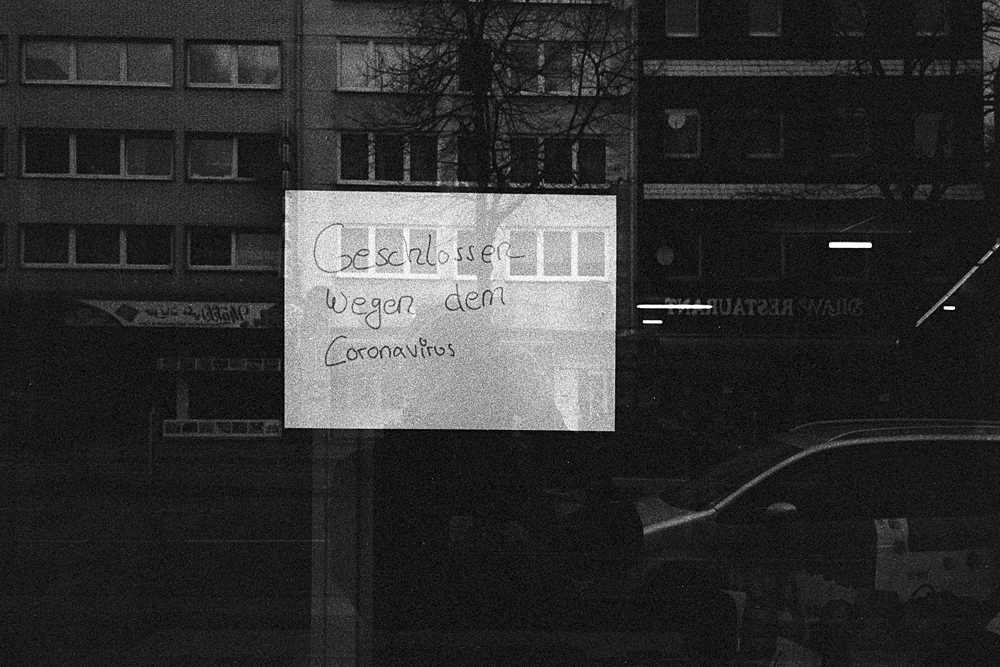 Geschlossen
wegen dem
Coronavirus
DILAN RESTAURANT